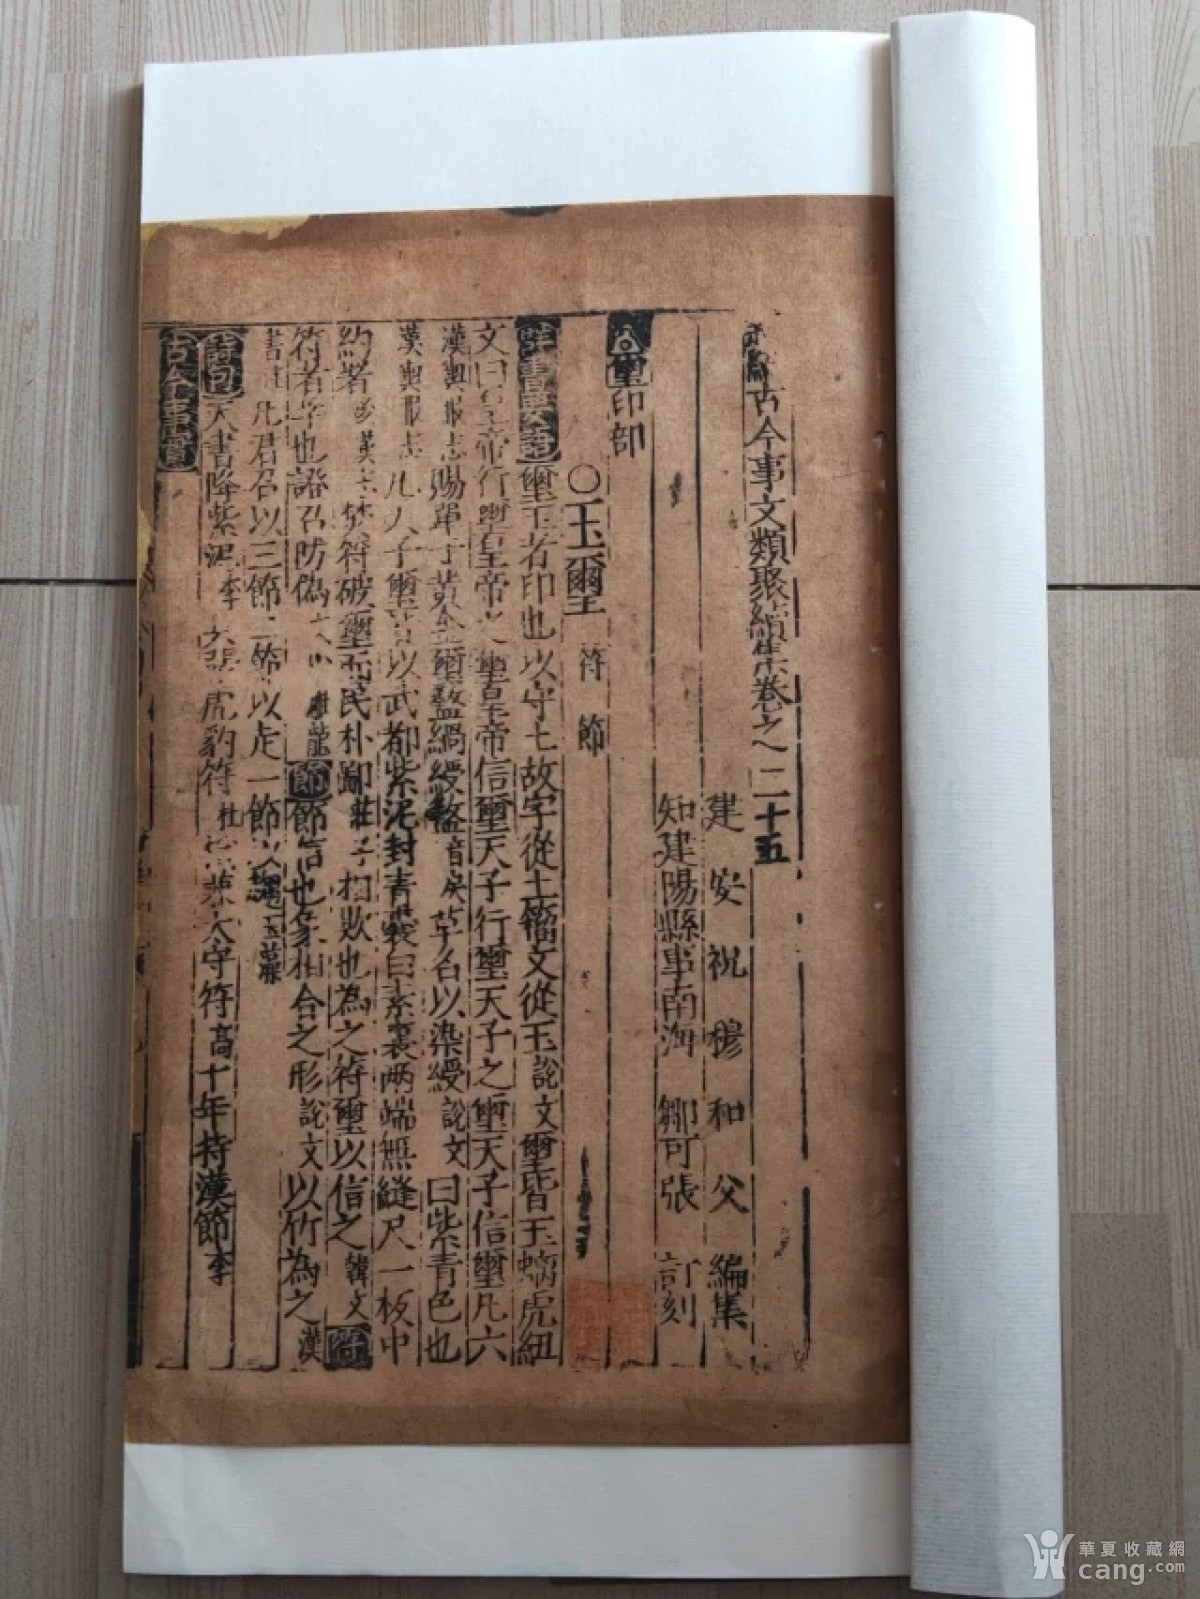 古今事文類聚續集卷之二十五
建安祝穆和父編集
知建陽縣事南海鄒可張訂刻
璽印部
○玉璽 符節
群書要語璽王者印也以守土故字從土籀文從玉說文璽皆玉螭虎紐
文曰皇帝行璽皇帝之璽皇帝信璽天子行璽天子之璽天子信璽凡六
漢輿服志賜單于黃金璽盭綬盭音戾草名以染綬說文曰紫青色也
漢輿服志凡天子璽皆以武都紫泥封青囊白素裏兩端無縫尺一板中
約署漢焚符破璽而民朴鄙莊子相欺也為之符璽以信之韓文符
符者孚也證召防偽節節信也象相合之形說文以竹為之漢
書註凡君召以三節二節以走一節以玉藻
詩句天書降紫泥李虎豹符杜太守符高十年持漢節李
古今事實
華夏收藏網
cang.com